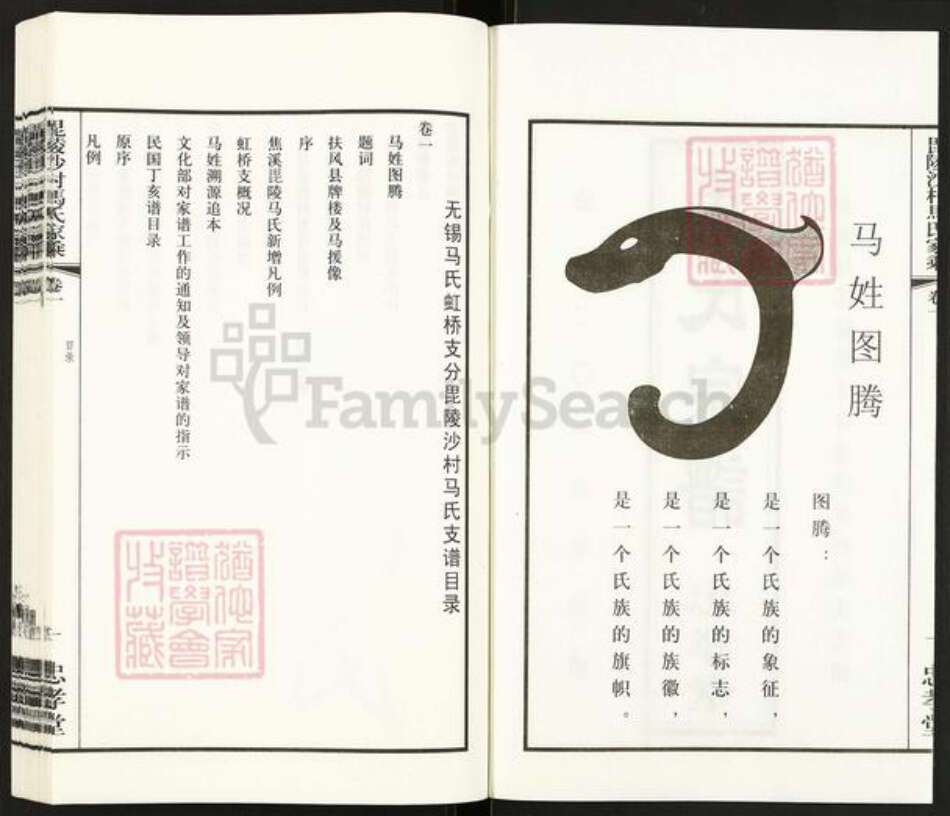 马姓图腾
图腾：
是一个氏族的象征，
是一个氏族的标志，
是一个氏族的族徽，
是一个氏族的旗帜。
毘陵沙村馬氏家乘
卷一
忠孝堂
无锡马氏虹桥支分毘陵沙村马氏支谱目录
卷一
马姓图腾
题词
扶风县牌楼及马援像
序
焦溪毘陵马氏新增凡例
虹桥支概况
马姓溯源追本
文化部对家谱工作的通知及领导对家谱的指示
民国丁亥谱目录
原序
凡例
毘陵沙村馬氏家乘
卷一
目录
一
忠孝堂
猶他家
譜學會
收藏
猶他家
譜學會
收藏
FamilySearch